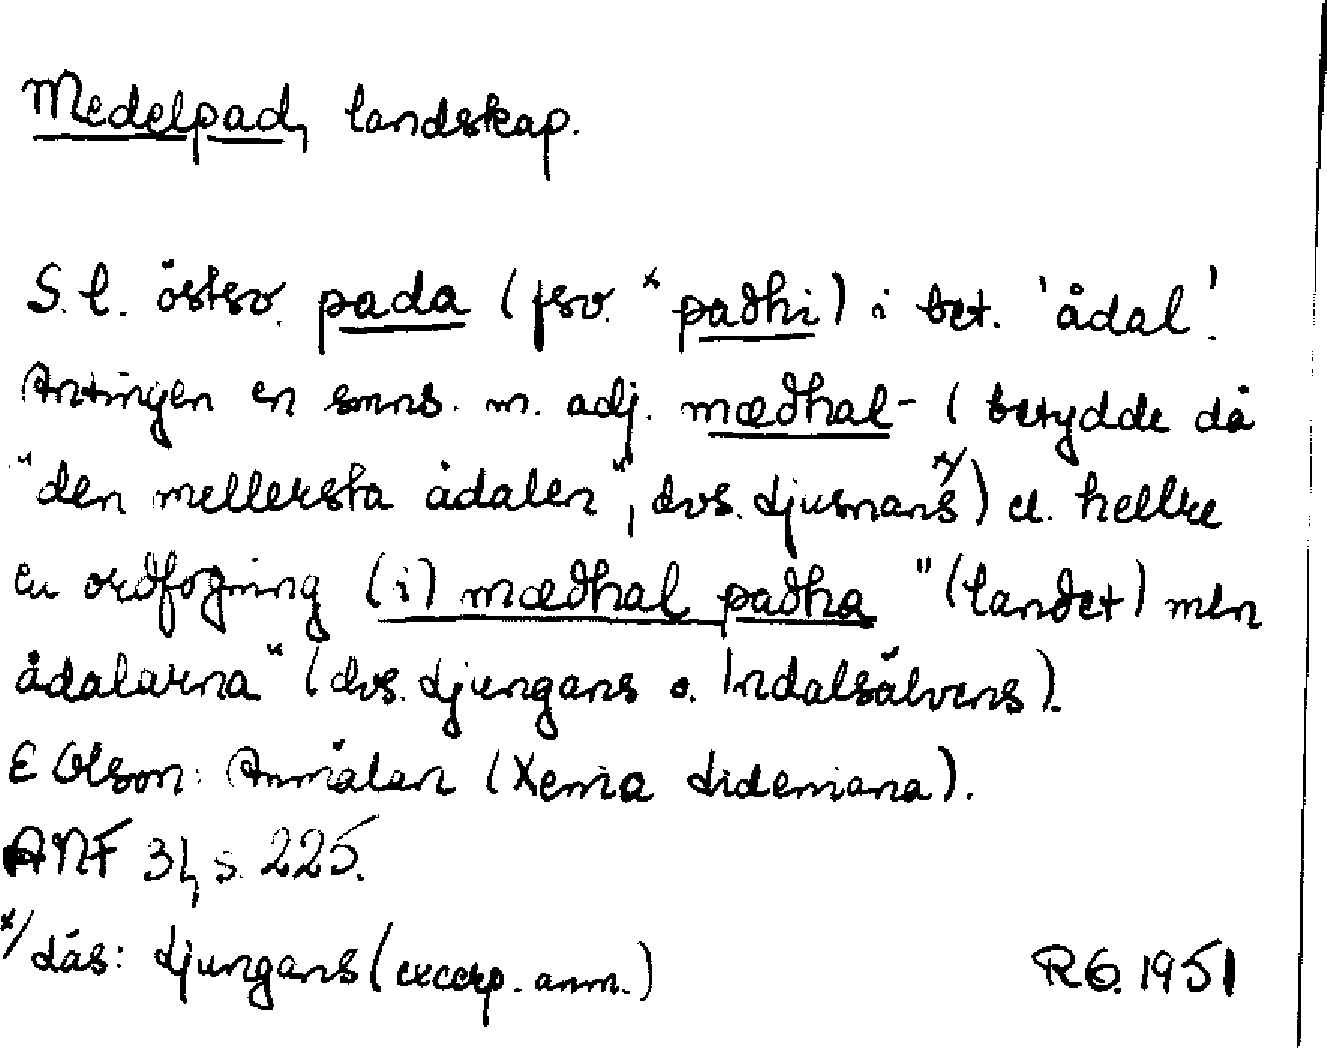 Medelpad, landskap.
S. l. östsv. pada (fsv. *paðhi) i bet. 'ådal'.
Antingen en smns. m. adj. mæðhal- (betydde då
"den mellersta ådalen", dvs. Ljusnans x/) el. hellre
en ordfogning (i) mæðhal paðha "(landet) mln
ådalarna" (dvs. Ljungans o. Indalsälvens).
E Olson: Anmälan (Xenia Lideniana).
ANF 31, s. 225.
x/ Läs: Ljungans (excerp. anm.)
RG. 1951